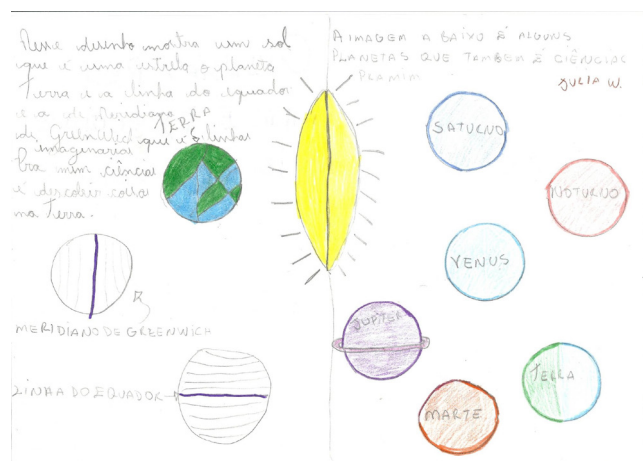 Nesse desenho mostra um sol
que é uma estrela, o planeta
Terra e a linha do equador
e a de Meridiano
de Greenwich que é linhas
imaginarias
Pra mim ciências
é descobrir coisa
na Terra.
TERRA
MERIDIANO DE GREENWICH
LINHA DO EQUADOR
A IMAGEM A BAIXO É ALGUNS
PLANETAS QUE TAMBEM É CIÊNCIAS
PRA MIM
JULIA W.
SATURNO
NOTURNO
VENUS
JUPITER
TERRA
MARTE